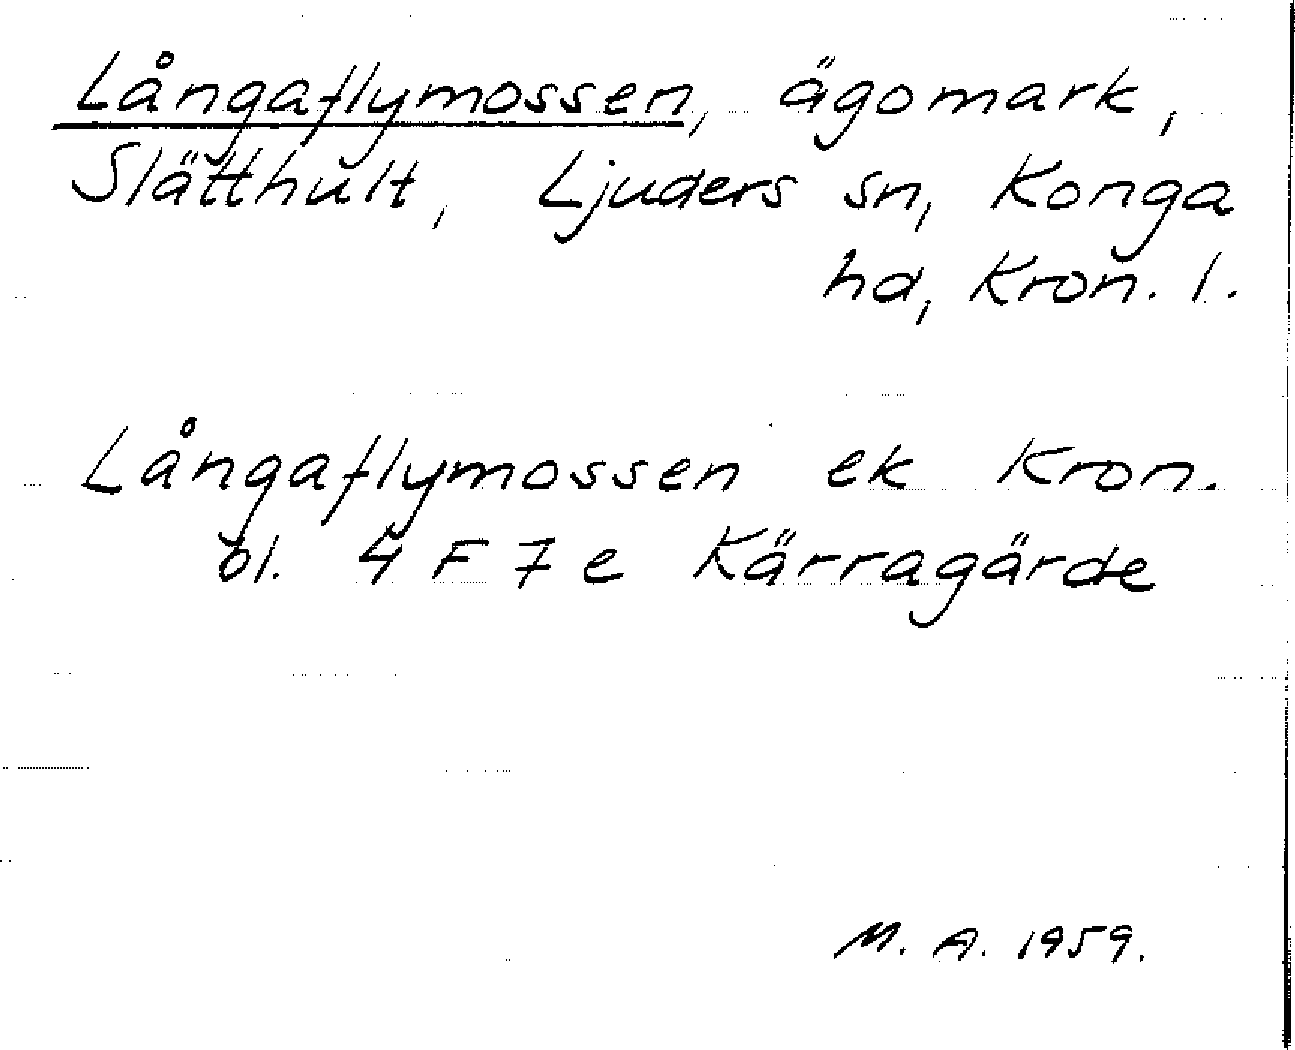 Långaflymossen, ägomark,
Slätthult, Ljuders sn, Konga
hd, Kron. l.
Långaflymossen ek Kron.
bl. 4 F 7 e Kärragärde
M. A. 1959.